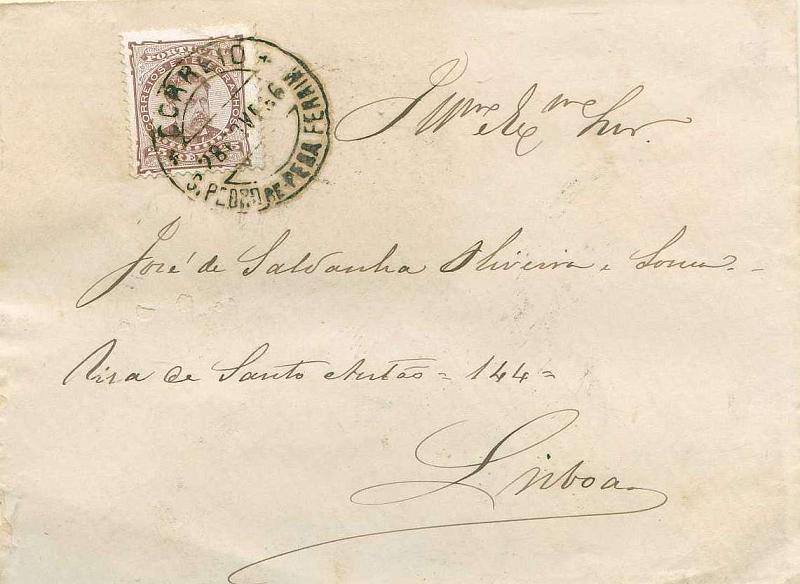 PORTUGAL
CORREIOS E TELEGRAPHOS
CORREIO
S. PEDRO DE PENA FERRIM
José de Saldanha Oliveira e Sousa
Rua de Santo Antão = 144 =
Lisboa